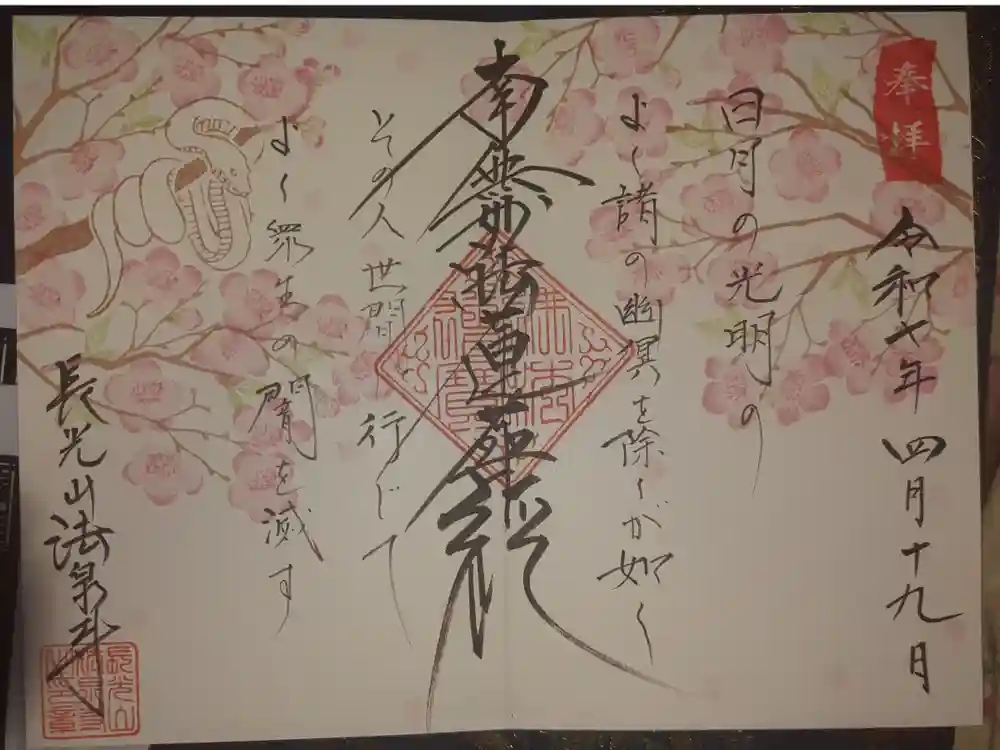 奉拝
令和七年 四月十九日
日月の光明の
よく諸の幽冥を除くが如く
南無妙法蓮華経
その人世間行じて
よく衆生の闇を滅す
長光山法泉寺